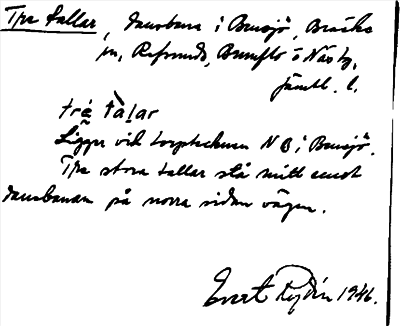 Tre tallar, dansbana i Bensjö, Bräcke
sn, Refsunds, Brunflo o Näs tg,
Jämtl. l.
tré tàlar
Ligger vid landsvägen N ö i Bensjö.
Tre stora tallar stå mitt emot
dansbanan på norra sidan vägen.
Evert Rydén 1946.